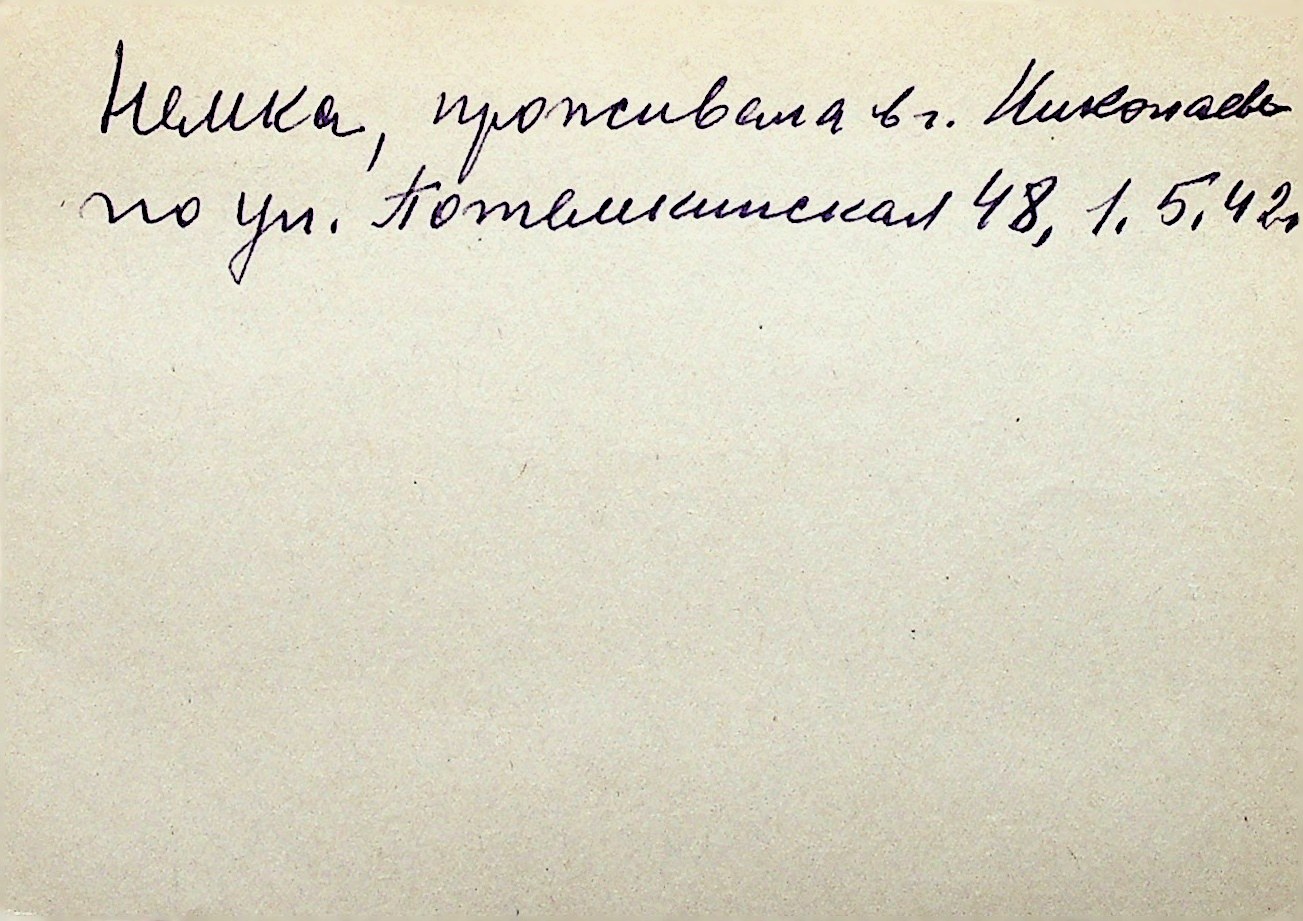 Немка, проживала в г. Николаеве
по ул. Потемкинская 48, 1.5.42г.